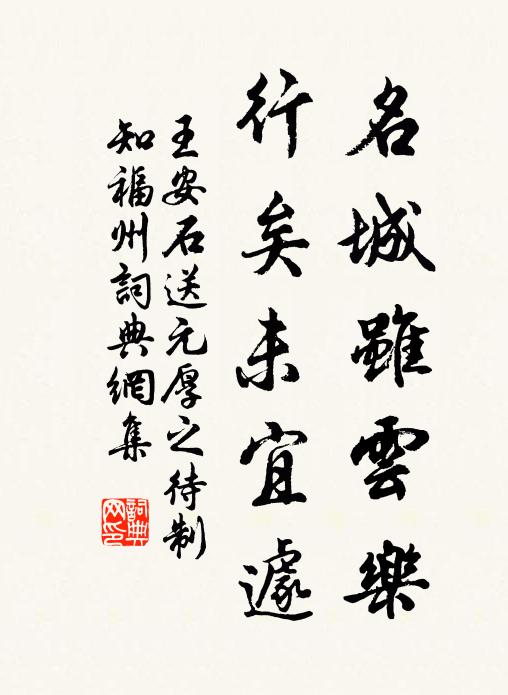 名城雖雲樂
行矣未宜遽
王安石送元厚之待制
知福州詞典網集
詞典網印